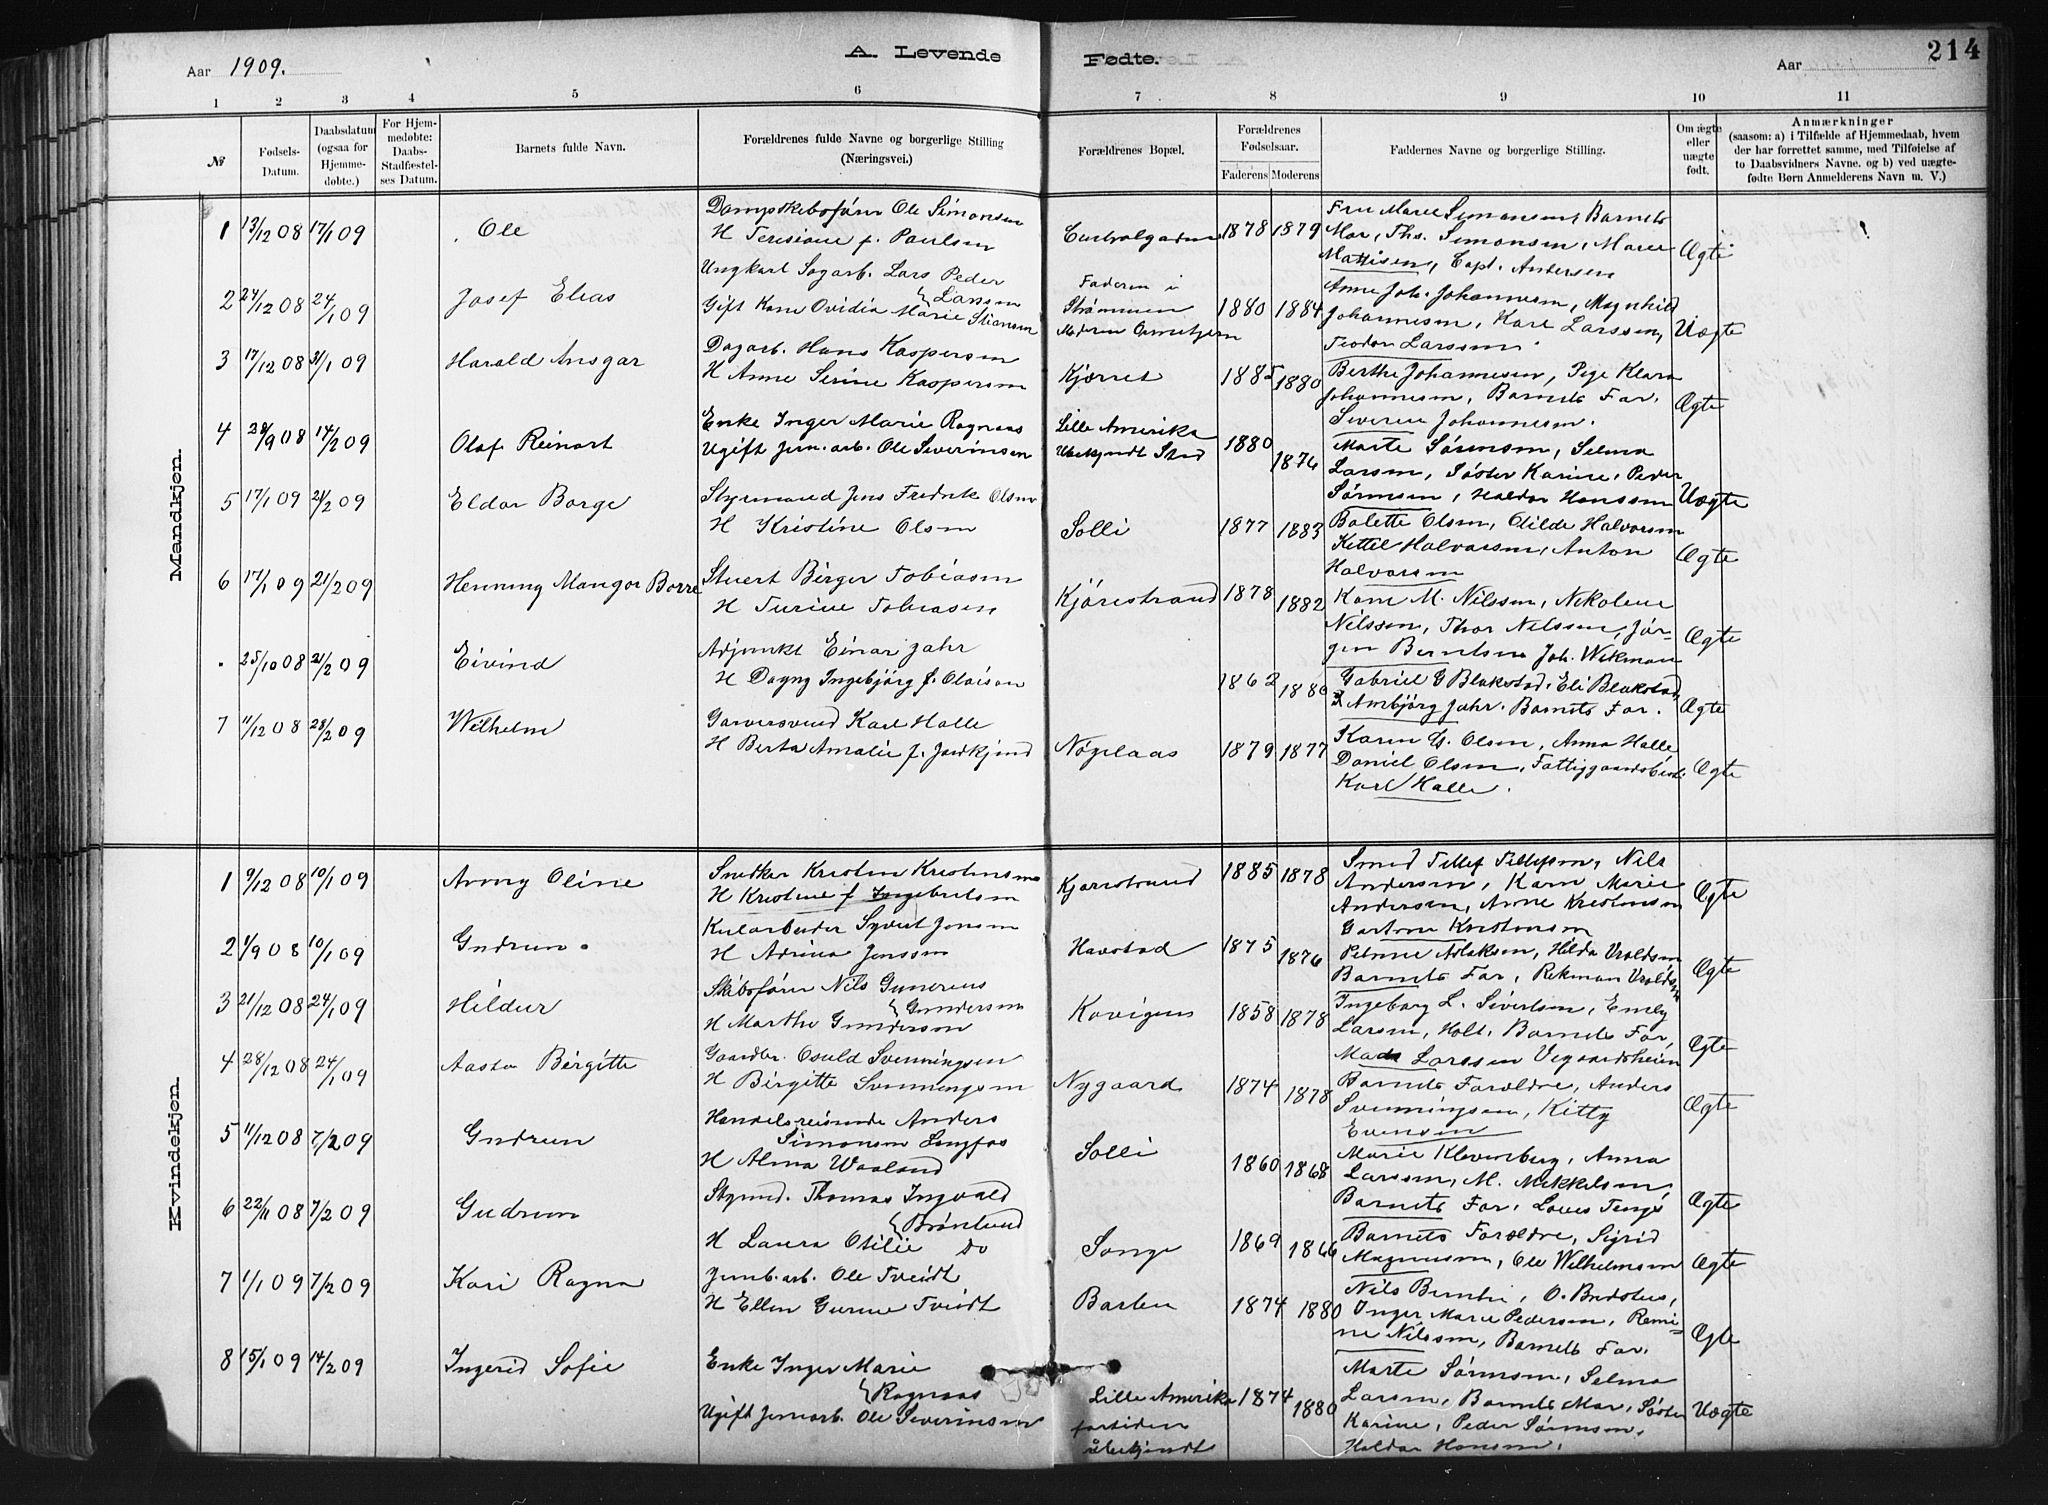 Aar 1909.
A. Levende Fødte.
Aar
214
1 2 3 4 5 6 7 8 9 10 11
№
Fødsels-Datum.
Daabsdatum (ogsaa for Hjemme-døbte.)
For Hjem-medøbte: Daabs-Stadfæstel-ses Datum.
Barnets fulde Navn.
Forældrenes fulde Navne og borgerlige Stilling (Næringsvei.)
Forældrenes Bopæl.
Forældrenes Fødselsaar.
Faderens Moderens
Faddernes Navne og borgerlige Stilling.
Om ægte eller uægte født.
Anmærkninger
(saasom: a) i Tilfælde af Hjemmedaab, hvem
der har forrettet samme, med Tilføielse af
to Daabsvidners Navne. og b) ved uægte-
fødte Børn Anmelderens Navn m. V.)
Mandkjøn.
1 13/12 08 17/1 09 Ole
Dampskibsfører Ole Simonsen
H Teresione f. Paulsen
1878 1879
Fru Marie Simonsen, Barnets
Mor, Ths. Simonsen, Marie
Mattisen, Capt. Andersen
Ægte
2 24/12 08 24/1 09 Josef Elias
Ungkarl Sagarb. Lars Peder
Larssen
Gift Kone Ovidia Marie Stiansen
Faderen i
Strømmen
Moderen
1880 1884
Anne Joh. Johannesen, Magnhild
Johannesen, Karl Larssen,
Teodor Larssen
Uægte
3 17/12 08 31/1 09 Harald Ansgar
Dagarb. Hans Kaspersen
H Anne Serine Kaspersen
Kjærret
1885 1880
Berthe Johannesen, Pige Klara
Johannesen, Barnets Far.
Severin Johannesen.
Ægte
4 28/9 08 14/2 09 Olaf Reinart
Enke Inger Marie Ragnaas
Ugift Jern.arb. Ole Severinsen
Lille Amerika
Ubekjendt Sted
1880
1874
Marte Sørensen, Selma
Larsen, Søster Karine, Peder
Sørensen, Haldor Hanssen
Uægte
5 17/1 09 21/2 09 Eldar Borge
Styrmand Jens Fredrik Olsen
H Kristine Olsen
Solli
1877 1883
Bolette Olsen, Otilde Halvorsen
Kettel Halvorsen, Anton
Halvorsen
Ægte
6 17/1 09 21/2 09 Henning Mangor Borre
Stuert Birger Tobiasen
H Turine Tobiasen
Kjørestrand
1878 1882
Kone M. Nilssen, Nikoline
Nilssen, Thor Nilssen, Jør-
gen Berntsen Joh. Wikman
Ægte
. 25/10 08 21/2 09 Eivind
Adjunkt Einar Jahr
H Dagny Ingebjørg f. Olaisen
1862 1880
Gabriel G Blakstad, Eli Blakstad,
Ambjørg Jahr. Barnets Far.
Ægte
7 11/12 08 28/2 09 Wilhelm
Garversvend Karl Halle
H Berta Amalie f.
Nøgelaas
1879 1877
Karen G. Olsen, Anna Halle
Daniel Olsen,
Karl Halle.
Ægte
Kvindekjøn.
1 9/12 08 10/1 09 Anny Oline
Snedker Kristen Kristensen
H Kristine f Ingebretsen
Kjørestrand
1885 1878
Smed Tellef Tellefsen, Nils
Andersen, Karn Marie
Andersen, Anne Kristensen
Ægte
2 1/9 08 10/1 09 Gudrun.
Kularbeider Syvert Jensen
H Adrina Jenssen
Havstad
1875 1876
Kristensen
Petrine Aslaksen, Hilda Vroldsen
Barnets Far, Rekman Vroldsen
Ægte
3 21/12 08 24/1 09 Hildur
Skibsfører Nils Gunerius
Gundersen
H Marthe Gundersen
1858 1878
Ingeborg L. Sivertsen, Emely
Larsen, Holt. Barnets Far,
Mads Larssen Vegaardsheien
Ægte
4 28/12 08 24/1 09 Aasta Birgitte
Gaardbr. Osuld Svenningsen
H Birgitte Svenningsen
Nygaard
1874 1878
Barnets Forældre, Anders
Svenningsen, Kitty
Evensen
Ægte
5 11/12 08 7/2 09 Gudrun
Handelsreisende Anders
Simonsen Longfos
H Alma Waaland
Solli
1860 1868
Marie Klevenberg, Anna
Larssen, M. Mikkelsen,
Barnets Far,
Ægte
6 22/11 08 7/2 09 Gudrun
Styrmd. Thomas Ingvald
Brønlund
H Laura Otilie do
Songe
1869 1866
Barnets Forældre, Sigrid
Magnussen, Ole Wilhelmsen
Ægte
7 1/1 09 7/2 09 Kari Ragna
Jernb.arb. Ole Tveidt
H Ellen Gurine Tveidt
Barbu
1874 1880
Nils Berntsen, O.
Inger Marie Pedersen, Remi-
ne Nilssen, Barnets Far.
Ægte
8 15/1 09 14/2 09 Ingerid Sofie
Enke Inger Marie
Ragnaas
Ugift Jernarb. Ole Severinsen
Lille Amerika
fortiden
ubekjendt
1874 1880
Marte Sørensen, Selma
Larsen, Barnets Mor, Søster
Karine, Peder Sørensen.
Haldor Hansen.
Uægte